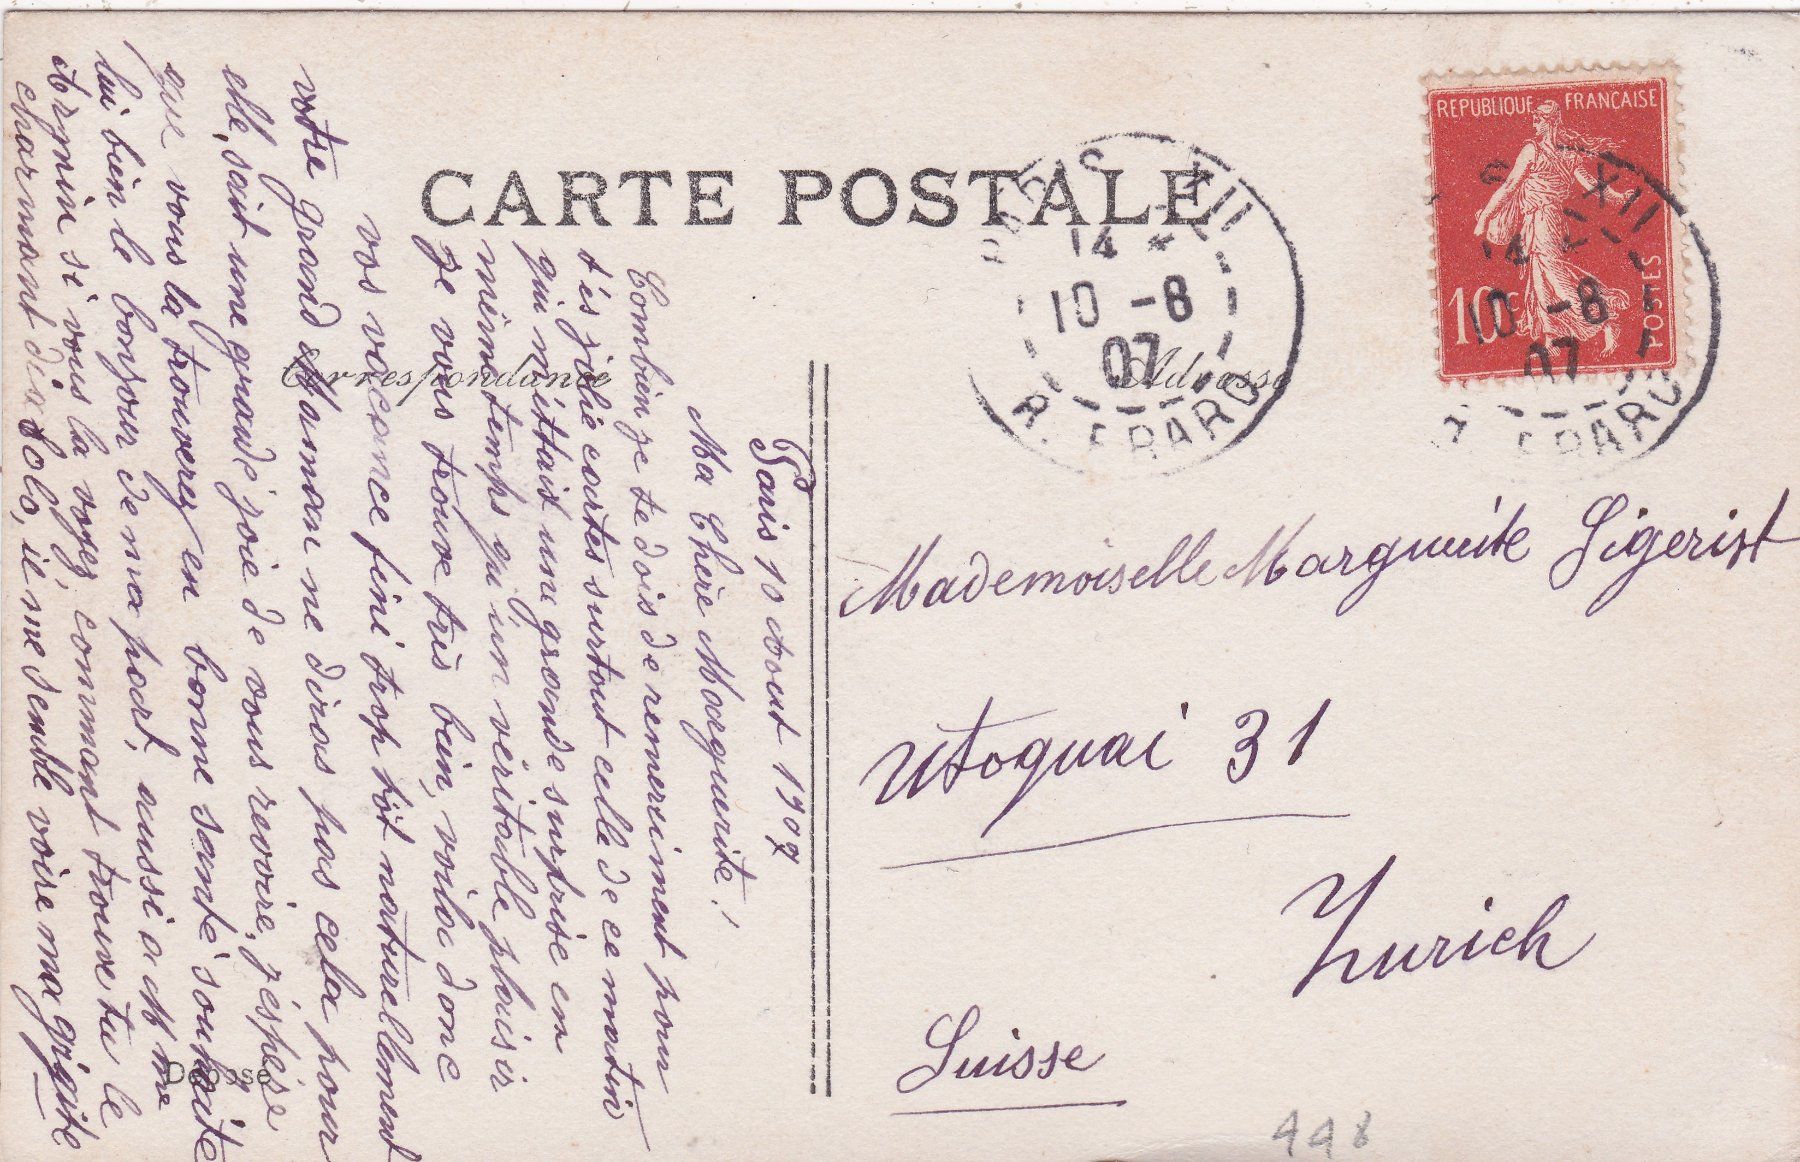 CARTE POSTALE
Correspondance
Adresse
REPUBLIQUE FRANÇAISE
10c
POSTES
PARIS XII
14 *
10 -8
07
R. ERARD
PARIS XII
14
10 -8
07
R. ERARD
Paris 10 Aout 1907
Ma Chère Marguerite!
Combien je te dois de remerciment pour
tes jolie cartes surtout celle de ce matin
qui m'éttait une grande surprise en
mime temps qu'un véritable plaisir
je vous trouve tres bien, voila donc
vos vacance fini trop tôt naturellement
votre grand Maman ne diras pas cela pour
elle, sait une grande joie de vous revoire, j'éspère
que vous la trouverez en bonne santé souhaite
lui bien le bonjour de ma part, aussi a Mme
Armin si vous la voyez commant trouve tu le
charmant diabolo, il me semble voire ma grigite
Mademoiselle Marguerite Sigerist
Utoquai 31
Zurich
Suisse
Déposé
448